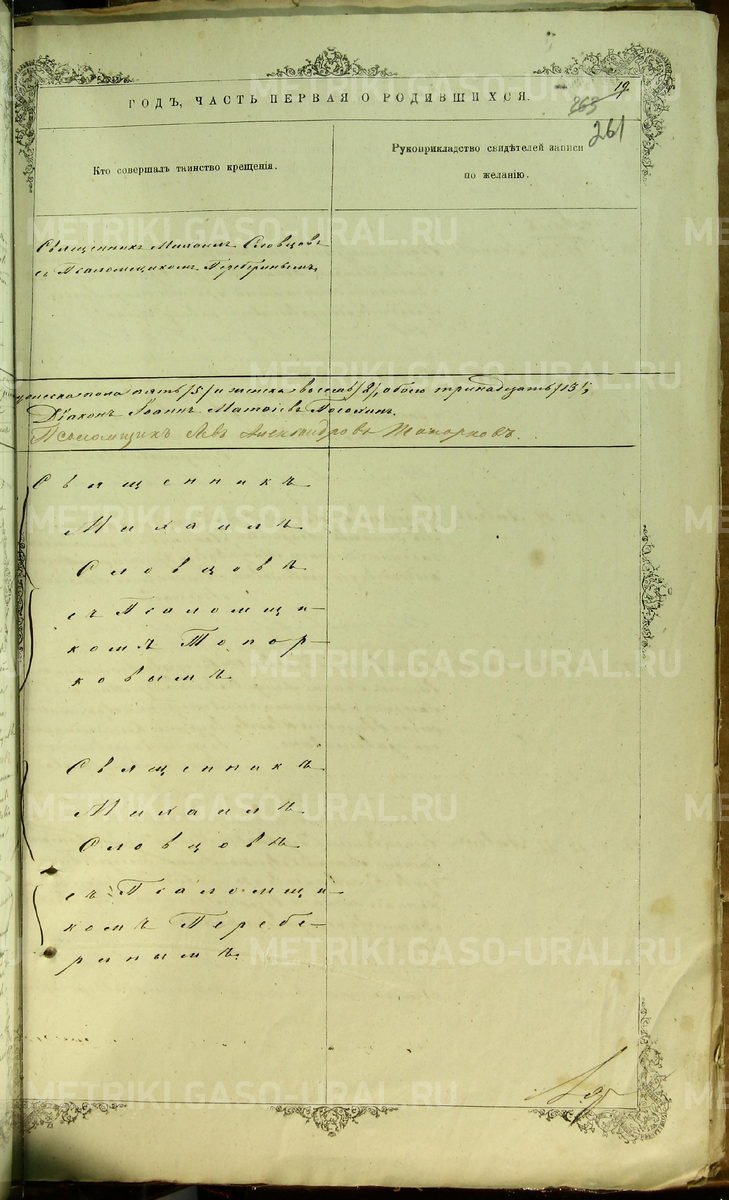 19.
263
261
ГОДЪ, ЧАСТЬ ПЕРВАЯ О РОДИВШИХСЯ.
Кто совершалъ таинство крещенія.
Рукоприкладство свидѣтелей записи
по желанію.
Священникъ Михаилъ Словцовъ
съ Псаломщикомъ Переберинымъ
мужеска пола пять /5/ и женска восемь обоего тринадцать /13/;
Діаконъ Іоаннъ
Псаломщикъ Левъ Александровъ Топорковъ.
Священникъ
Михаилъ
Словцовъ
съ Псаломщи-
комъ Топор-
ковымъ
Священникъ
Михаилъ
Словцовъ
съ Псаломщи-
комъ Перебе-
ринымъ.
METRIKI.GASO-URAL.RU